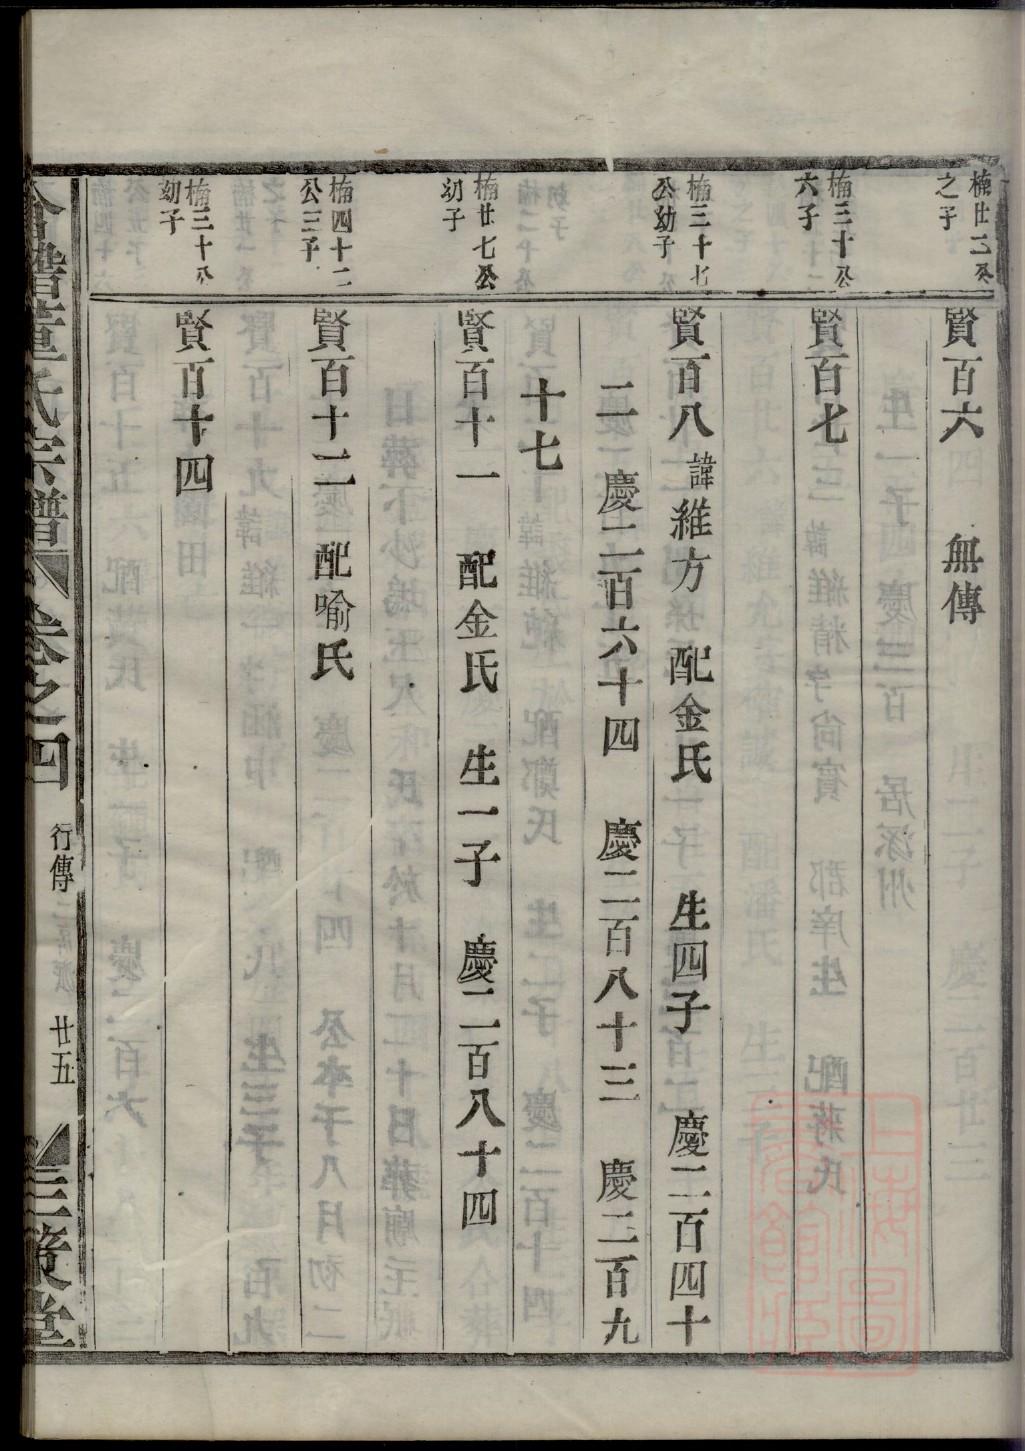 楠廿二公
之子
賢百六 無傳
楠三十公
六子
賢百七
楠三十七
公幼子
賢百八 諱維方 配金氏 生四子 慶二百四十
二 慶二百六十四 慶二百八十三 慶二百九
十七
楠廿七公
幼子
賢百十一 配金氏 生一子 慶二百八十四
楠四十二
公三子
賢百十二 配喻氏
楠三十公
幼子
賢百十四
董氏宗譜 卷之四 行傳 廿五 三策堂